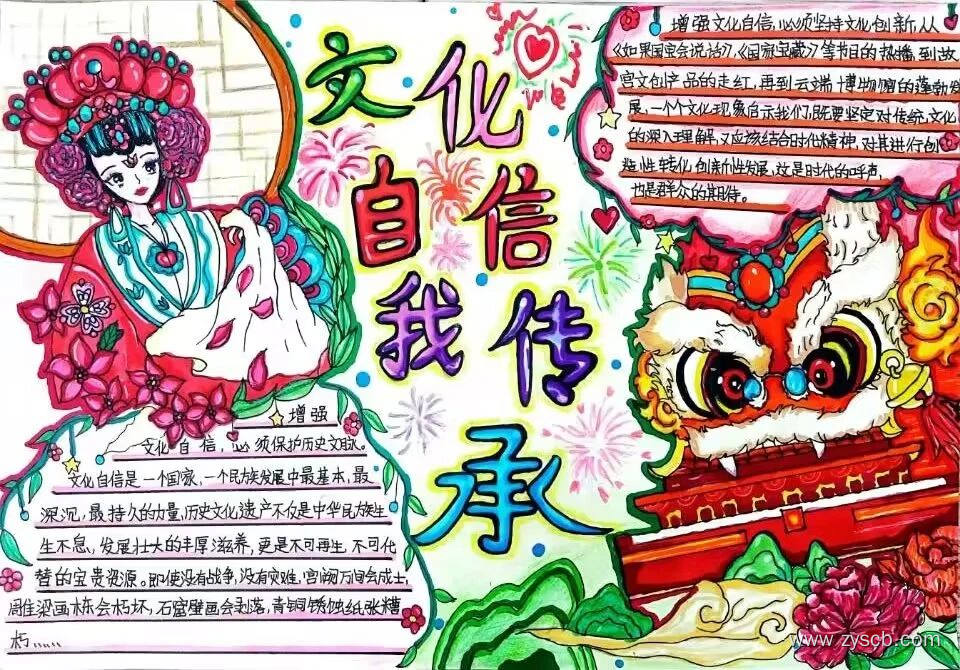 文化
自信
我传
承
增强文化自信,必须坚持文化创新,从
《如果国宝会说话》、《国家宝藏》等节目的热播,到故
宫文创产品的走红,再到云端博物馆的蓬勃发
展,一个个文化现象启示我们,既要坚定对传统文化
的深入理解,又应该结合时代精神,对其进行创
造性转化,创新性发展,这是时代的呼声,
也是群众的期待。
增强
文化自信,必须保护历史文脉。
文化自信是一个国家,一个民族发展中最基本,最
深沉,最持久的力量,历史文化遗产不仅是中华民族生
生不息,发展壮大的丰厚滋养,更是不可再生,不可代
替的宝贵资源。即使没有战争,没有灾难,宫阙万间会成土,
雕梁画栋会朽坏,石窟壁画会剥落,青铜锈蚀纸张糟
朽……
www.zyscb.com